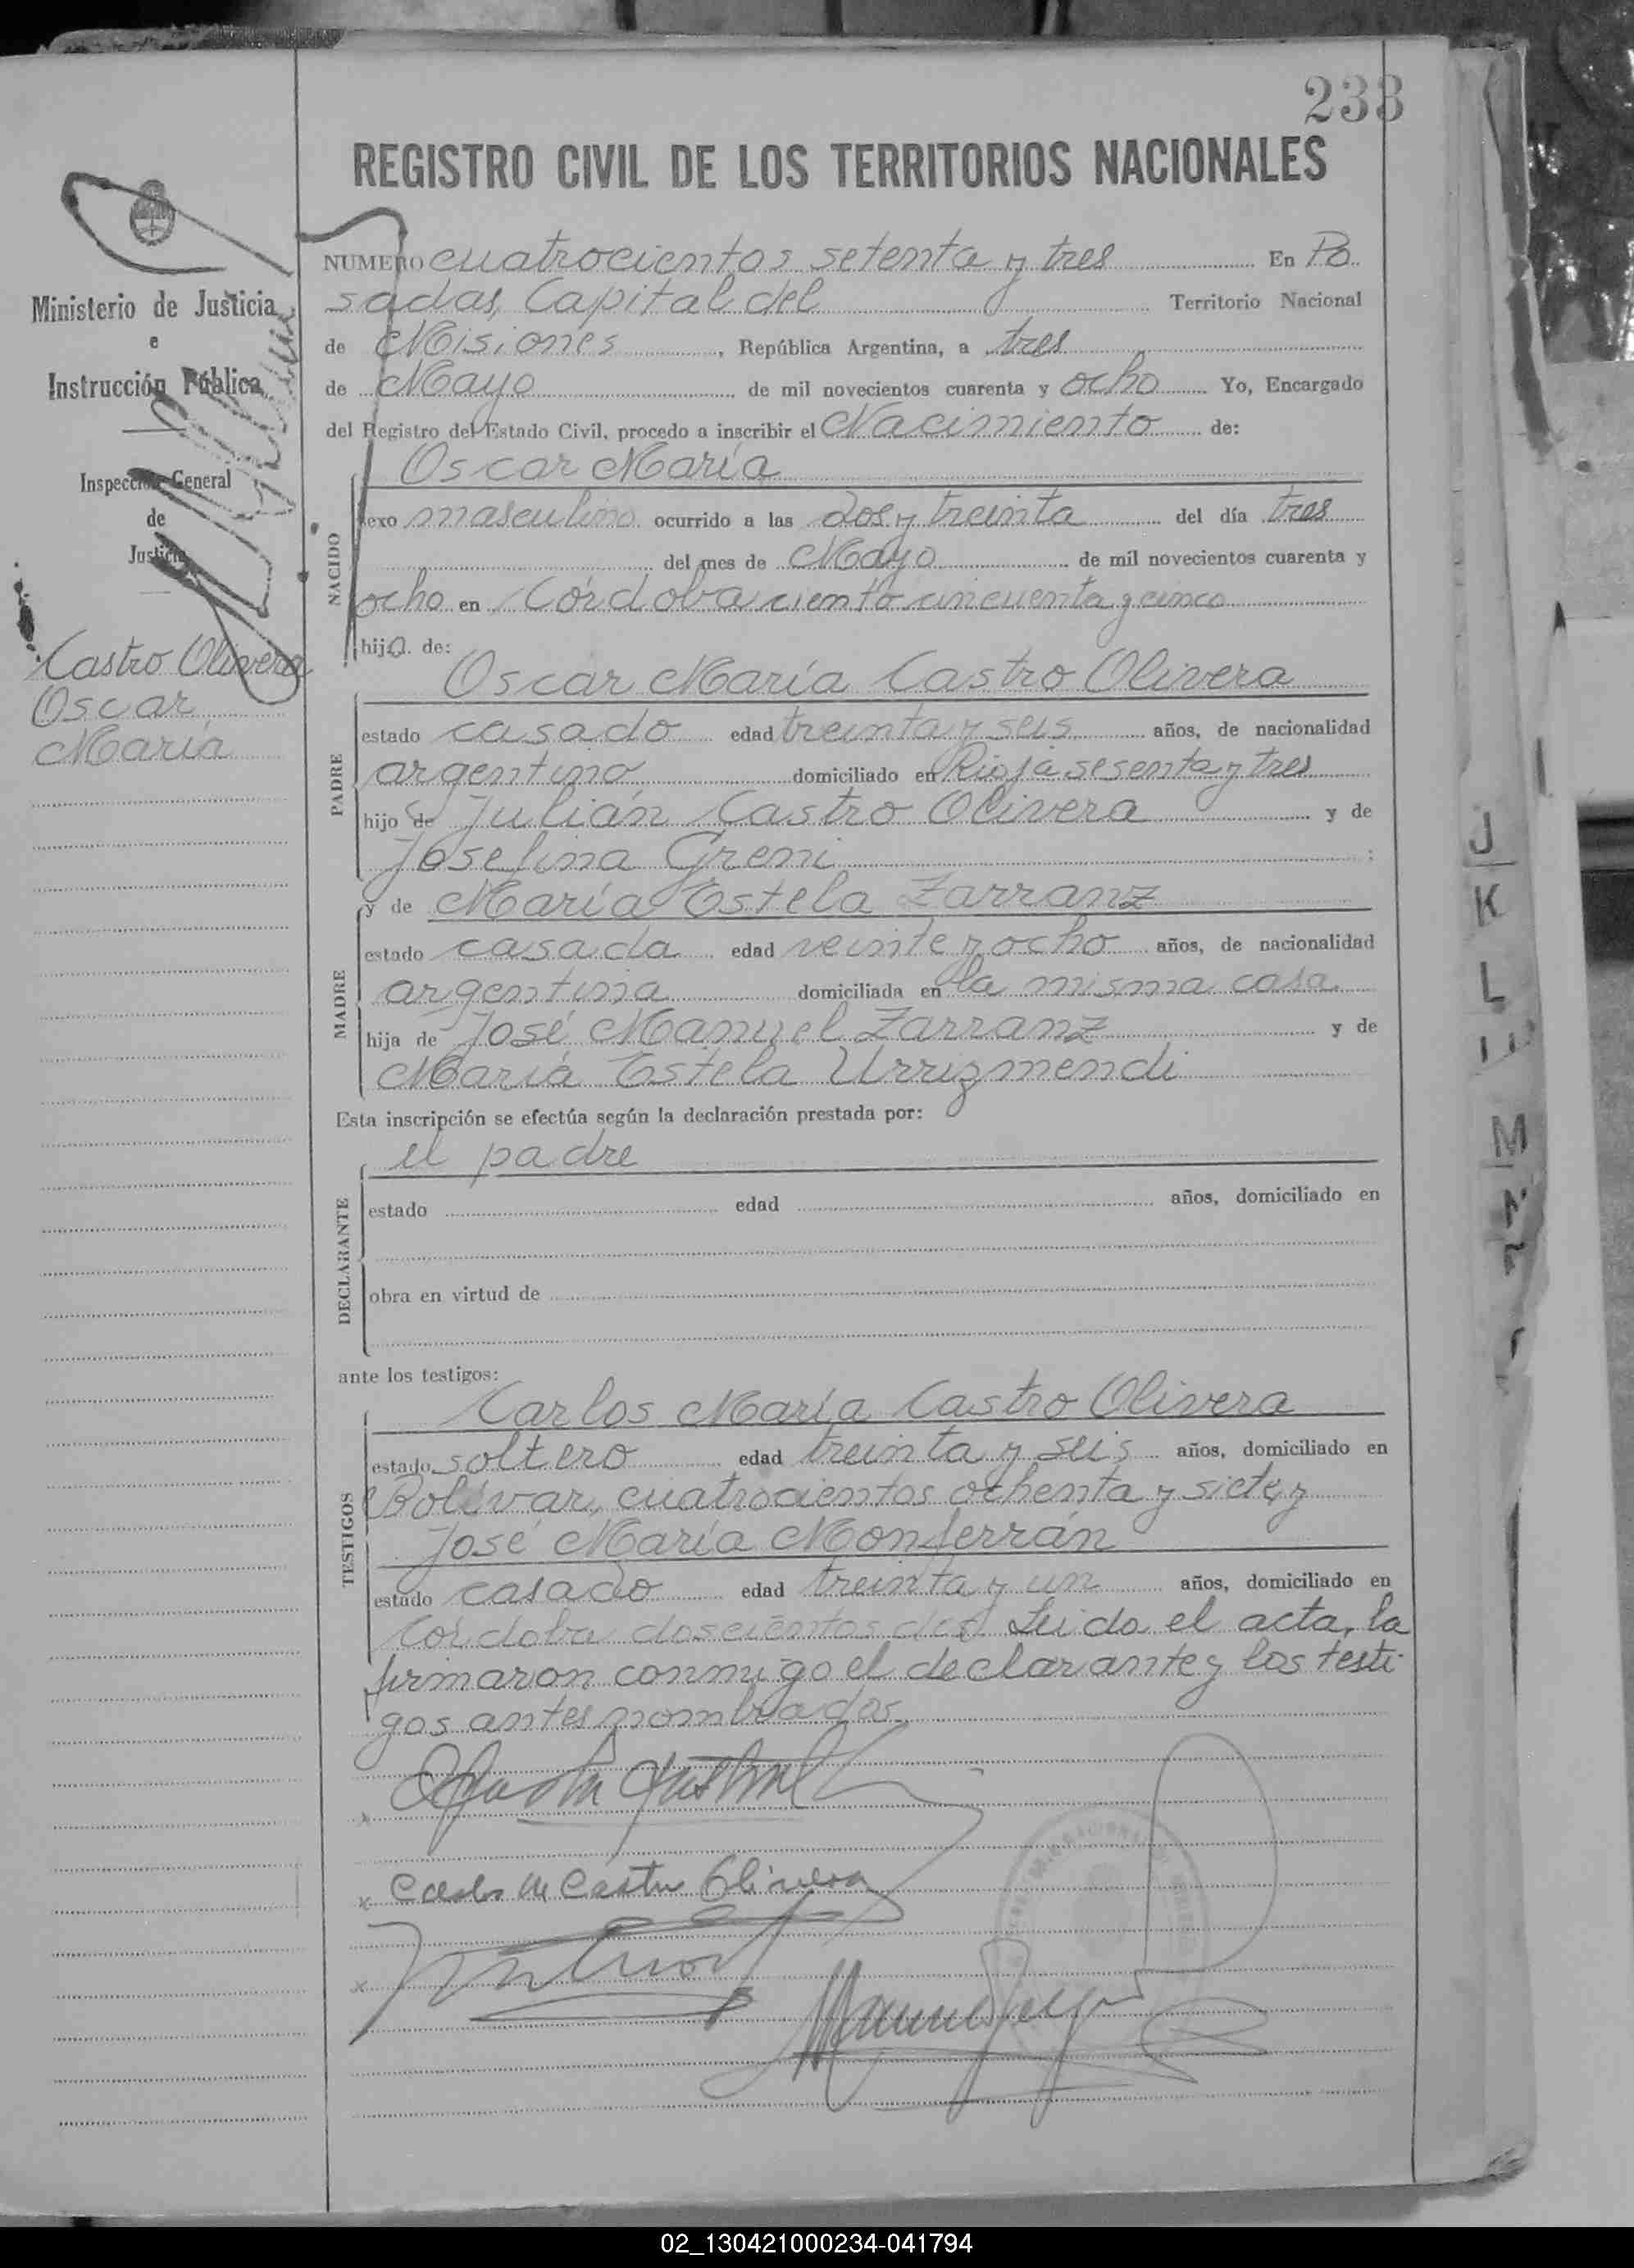 233
REGISTRO CIVIL DE LOS TERRITORIOS NACIONALES
Ministerio de Justicia
e
Instrucción Pública
Inspección General
de
Justicia
Castro Olivera
Oscar
María
NUMERO cuatrocientos setenta y tres En Po
sadas, Capital del Territorio Nacional
de Misiones, República Argentina, a tres
de Mayo de mil novecientos cuarenta y ocho Yo, Encargado
del Registro del Estado Civil, procedo a inscribir el Nacimiento de:
Oscar María
NACIDO
sexo masculino ocurrido a las dos y treinta del día tres
del mes de Mayo de mil novecientos cuarenta y
ocho en Córdoba ciento cincuenta y cinco
hijo de:
Oscar María Castro Olivera
PADRE
estado casado edad treinta y seis años, de nacionalidad
argentino domiciliado en Rioja sesenta y tres
hijo de Julián Castro Olivera y de
Josefina Greni;
y de María Estela Zarranz
MADRE
estado casada edad veinte y ocho años, de nacionalidad
argentina domiciliada en la misma casa
hija de José Manuel Zarranz y de
María Estela Urrizmendi
Esta inscripción se efectúa según la declaración prestada por:
el padre
DECLARANTE
estado edad años, domiciliado en
obra en virtud de
ante los testigos:
Carlos María Castro Olivera
TESTIGOS
estado soltero edad treinta y seis años, domiciliado en
Bolívar, cuatrocientos ochenta y siete, y
José María Monferrán
estado casado edad treinta y un años, domiciliado en
Córdoba doscientos Leida el acta, la
firmaron conmigo el declarante y los testi-
gos antes nombrados.
Carlos M Castro Olivera
J
K
L
LL
M
N
02_130421000234-041794